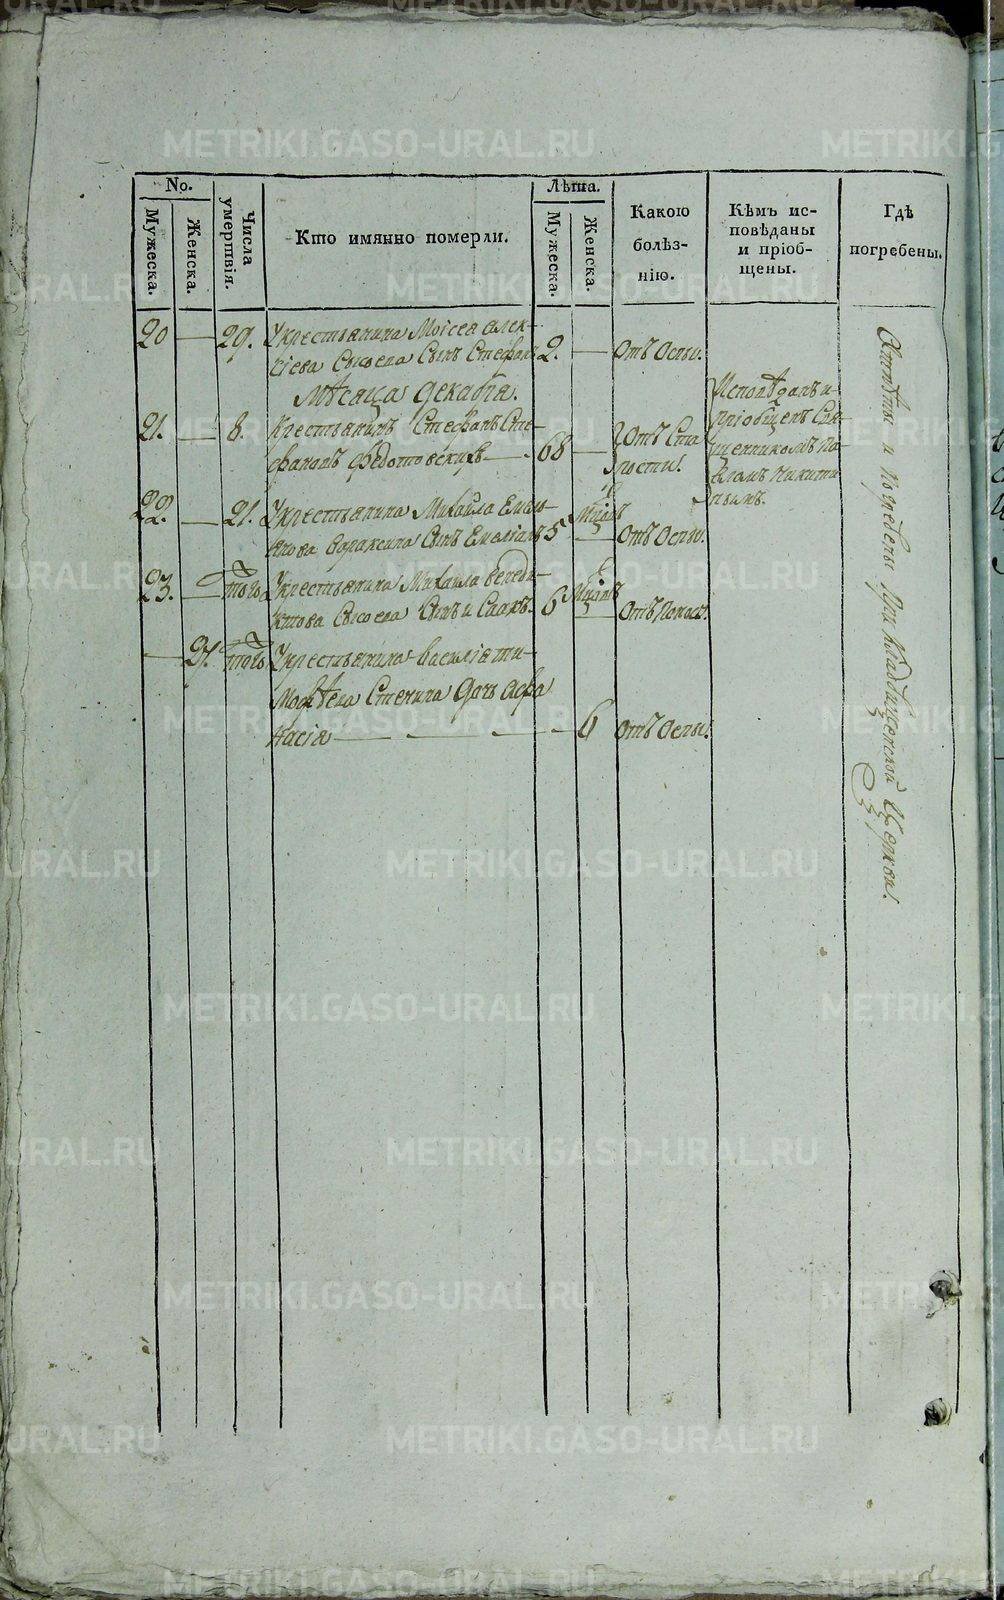 METRIKI.GASO-URAL.RU
No.
Мужеска.
Женска.
Числа умертвія.
Кто имянно померли.
Лѣта.
Мужеска.
Женска.
Какою болѣз-
нію.
Кѣмъ ис-
повѣданы
и пріоб-
щены.
Гдѣ
погребены.
20 — 29. У крестьянина Моісея Алек-
сіева Сысоева Сынъ Стефанъ 2. — Отъ Оспы.
Мѣсяца Декабря.
21. — 8. Крестьянинъ Стефанъ Сте-
фановъ Федотовскихъ — 68 — Отъ Ста
рости.
Исповѣданъ и
пріобщенъ Свя
щенникомъ Па
вломъ Никити
нымъ.
22. — 21. У крестьянина Михайла Емель-
янова Сынъ Емеліанъ 5 — Отъ Оспы.
23. — того У крестьянина Михаила
Сысоева Сынъ Савва. 6 —
— 27. того У крестьянина Василія Ти-
мофѣева Стенина Дочь Афа
насія — — — — 6 Отъ Оспы.
Отпѣты и погребены при Кладбищенской Церкви.